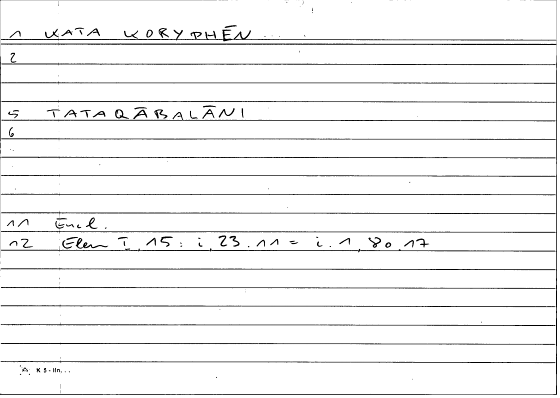 1 KATA KORYPHĒN ...
2
5 TATAQĀBALĀNI
6
11 Eucl.
12 Elem I, 15: i, 23.11 = i.1, 80.17